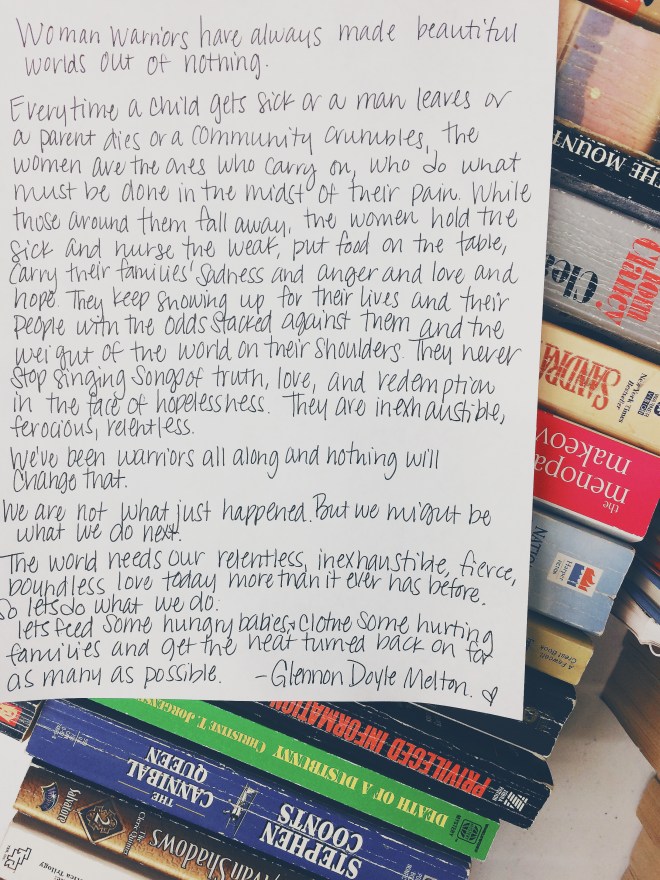 Woman Warriors have always made beautiful
worlds out of nothing.
Everytime a child gets sick or a man leaves or
a parent dies or a community crumbles, the
women are the ones who carry on, who do what
must be done in the midst of their pain. While
those around them fall away, the women hold the
sick and nurse the weak, put food on the table,
carry their families' sadness and anger and love and
hope. They keep showing up for their lives and their
people with the odds stacked against them and the
weight of the world on their shoulders. They never
stop singing songs of truth, love, and redemption
in the face of hopelessness. They are inexhaustible,
ferocious, relentless.
We've been warriors all along and nothing will
change that.
We are not what just happened. But we might be
what we do next.
The world needs our relentless, inexhaustible, fierce,
boundless love today more than it ever has before.
So lets do what we do:
lets feed some hungry babies & clothe some hurting
families and get the heat turned back on for
as many as possible. - Glennon Doyle Melton.
THE MOUNT
Tom Clancy
Clea
SANDRA
New York Times
Bestseller
the menopa
makeov
NATI
Harper
A Fawcett
Great Book
PRIVILEGED INFORMATION
DEATH OF A DUSTBUNNY CHRISTINE T. JORGENS
MYSTERY
STEPHEN
COONTS
THE
CANNIBAL
QUEEN
Shadows
The
Cleric Quintet
2
Salvatore
Trilogy